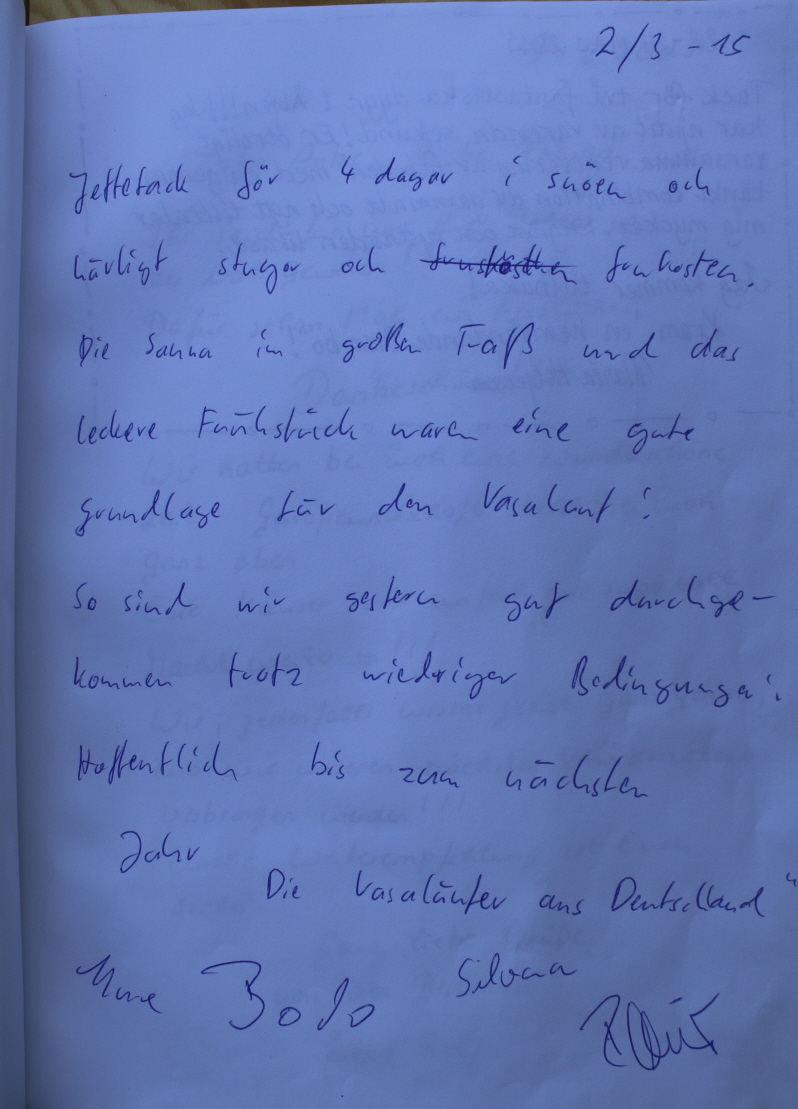 2/3 - 15
Jettetack för 4 dagar i snöen och
härligt stugor och frukosten.
Die Sauna im großen Faß und das
leckere Frühstück waren eine gute
Grundlage für den Vasalauf!
So sind wir gestern gut durchge-
kommen trotz wiedriger Bedingungen.
Hoffentlich bis zum nächsten
Jahr
Die Vasaläufer aus Deutschland"
Bodo Silvana